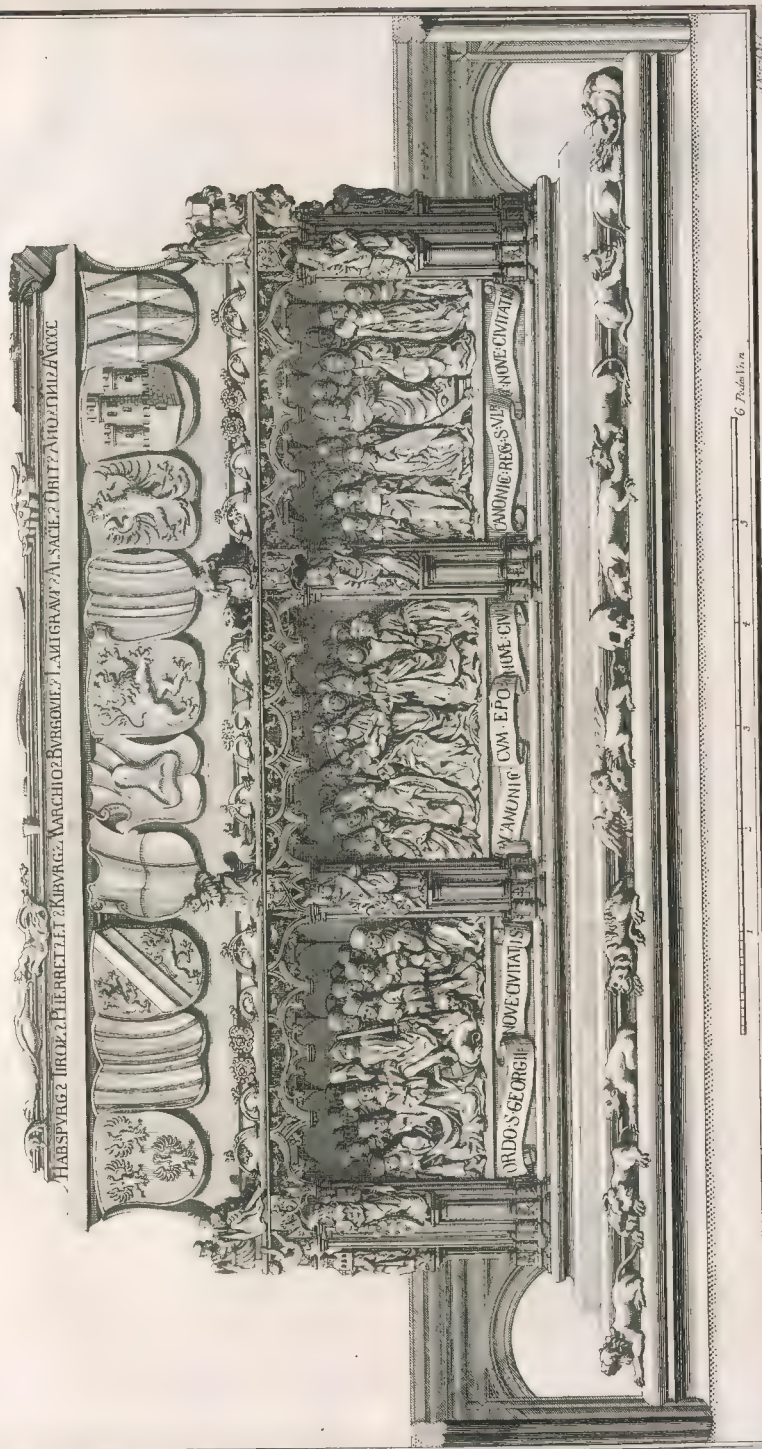 HABSPVRG? TIROL? PHERRET? ET? KIBVRG? MARCHIO? BVRGOVIE? LANTGRAVI? ALSACIE? OBIIT? ANO? DNI? MCCCC
ORDO·S·GEORGII: NOVE CIVITATIS
CANONIC CVM·EPO NOVE:CIV
CANONIC:REG·S·VL NOVE:CIVITATIS
1 2 3 4 5 6 Pedes Vien